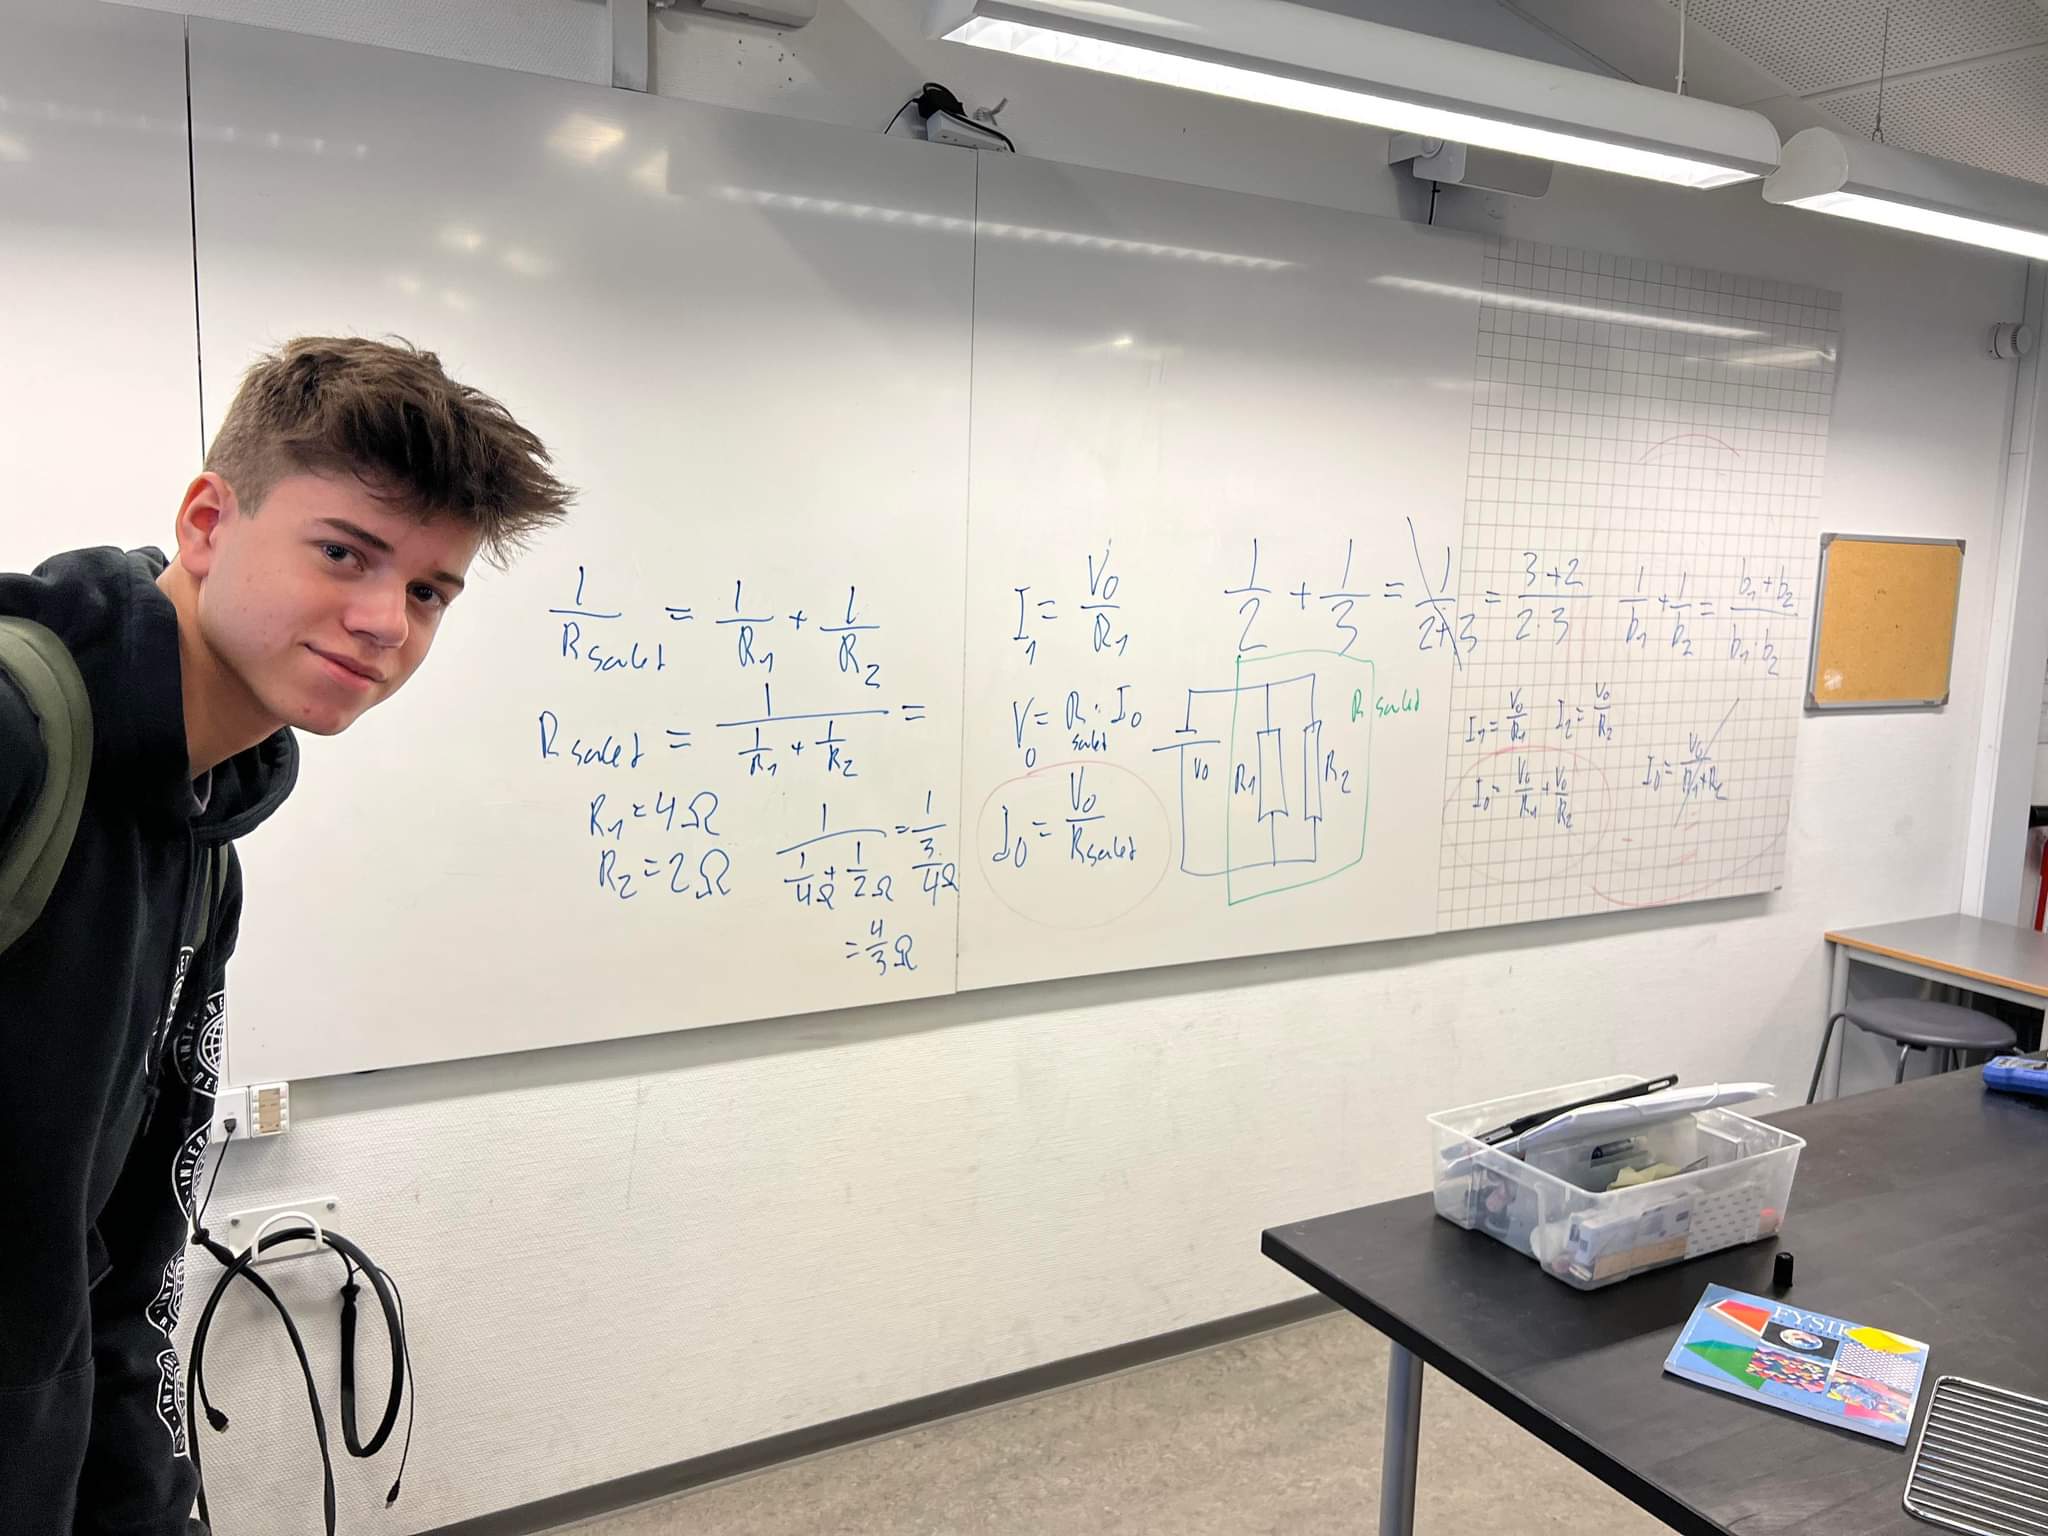 1/R samlet = 1/R1 + 1/R2
R samlet = 1/(1/R1 + 1/R2) =
R1 = 4Ω
R2 = 2Ω
1/(1/4Ω + 1/2Ω) = 1/(3/4Ω)
= 4/3 Ω
I1 = V0/R1
V0 = R samlet · I0
I0 = V0/R samlet
V0
R1
R2
R samlet
1/2 + 1/3 = 1/(2+3) = (3+2)/(2·3)
1/b1 + 1/b2 = (b1+b2)/(b1·b2)
I1 = V0/R1 I2 = V0/R2
I0 = V0/R1 + V0/R2
I0 = V0/(R1+R2)
FYSIK